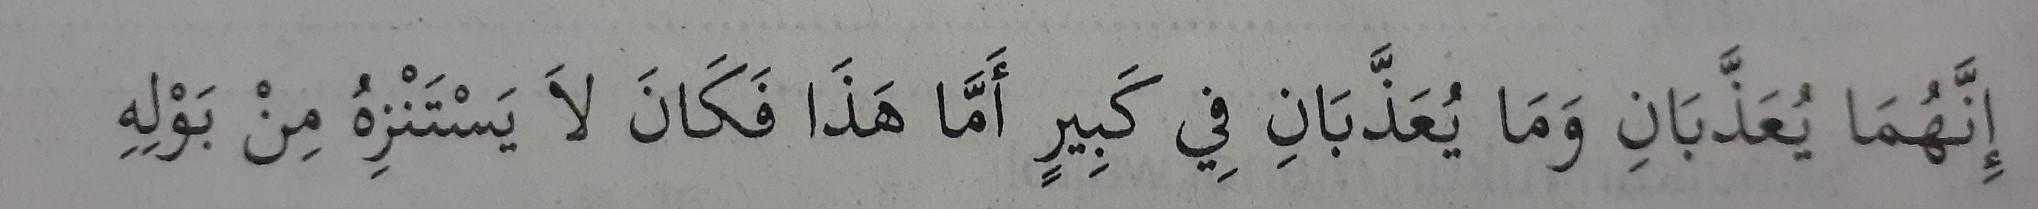 إِنَّهُمَا يُعَذَّبَانِ وَمَا يُعَذَّبَانِ فِي كَبِيرٍ أَمَّا هَذَا فَكَانَ لاَ يَسْتَنْزِهُ مِنْ بَوْلِهِ